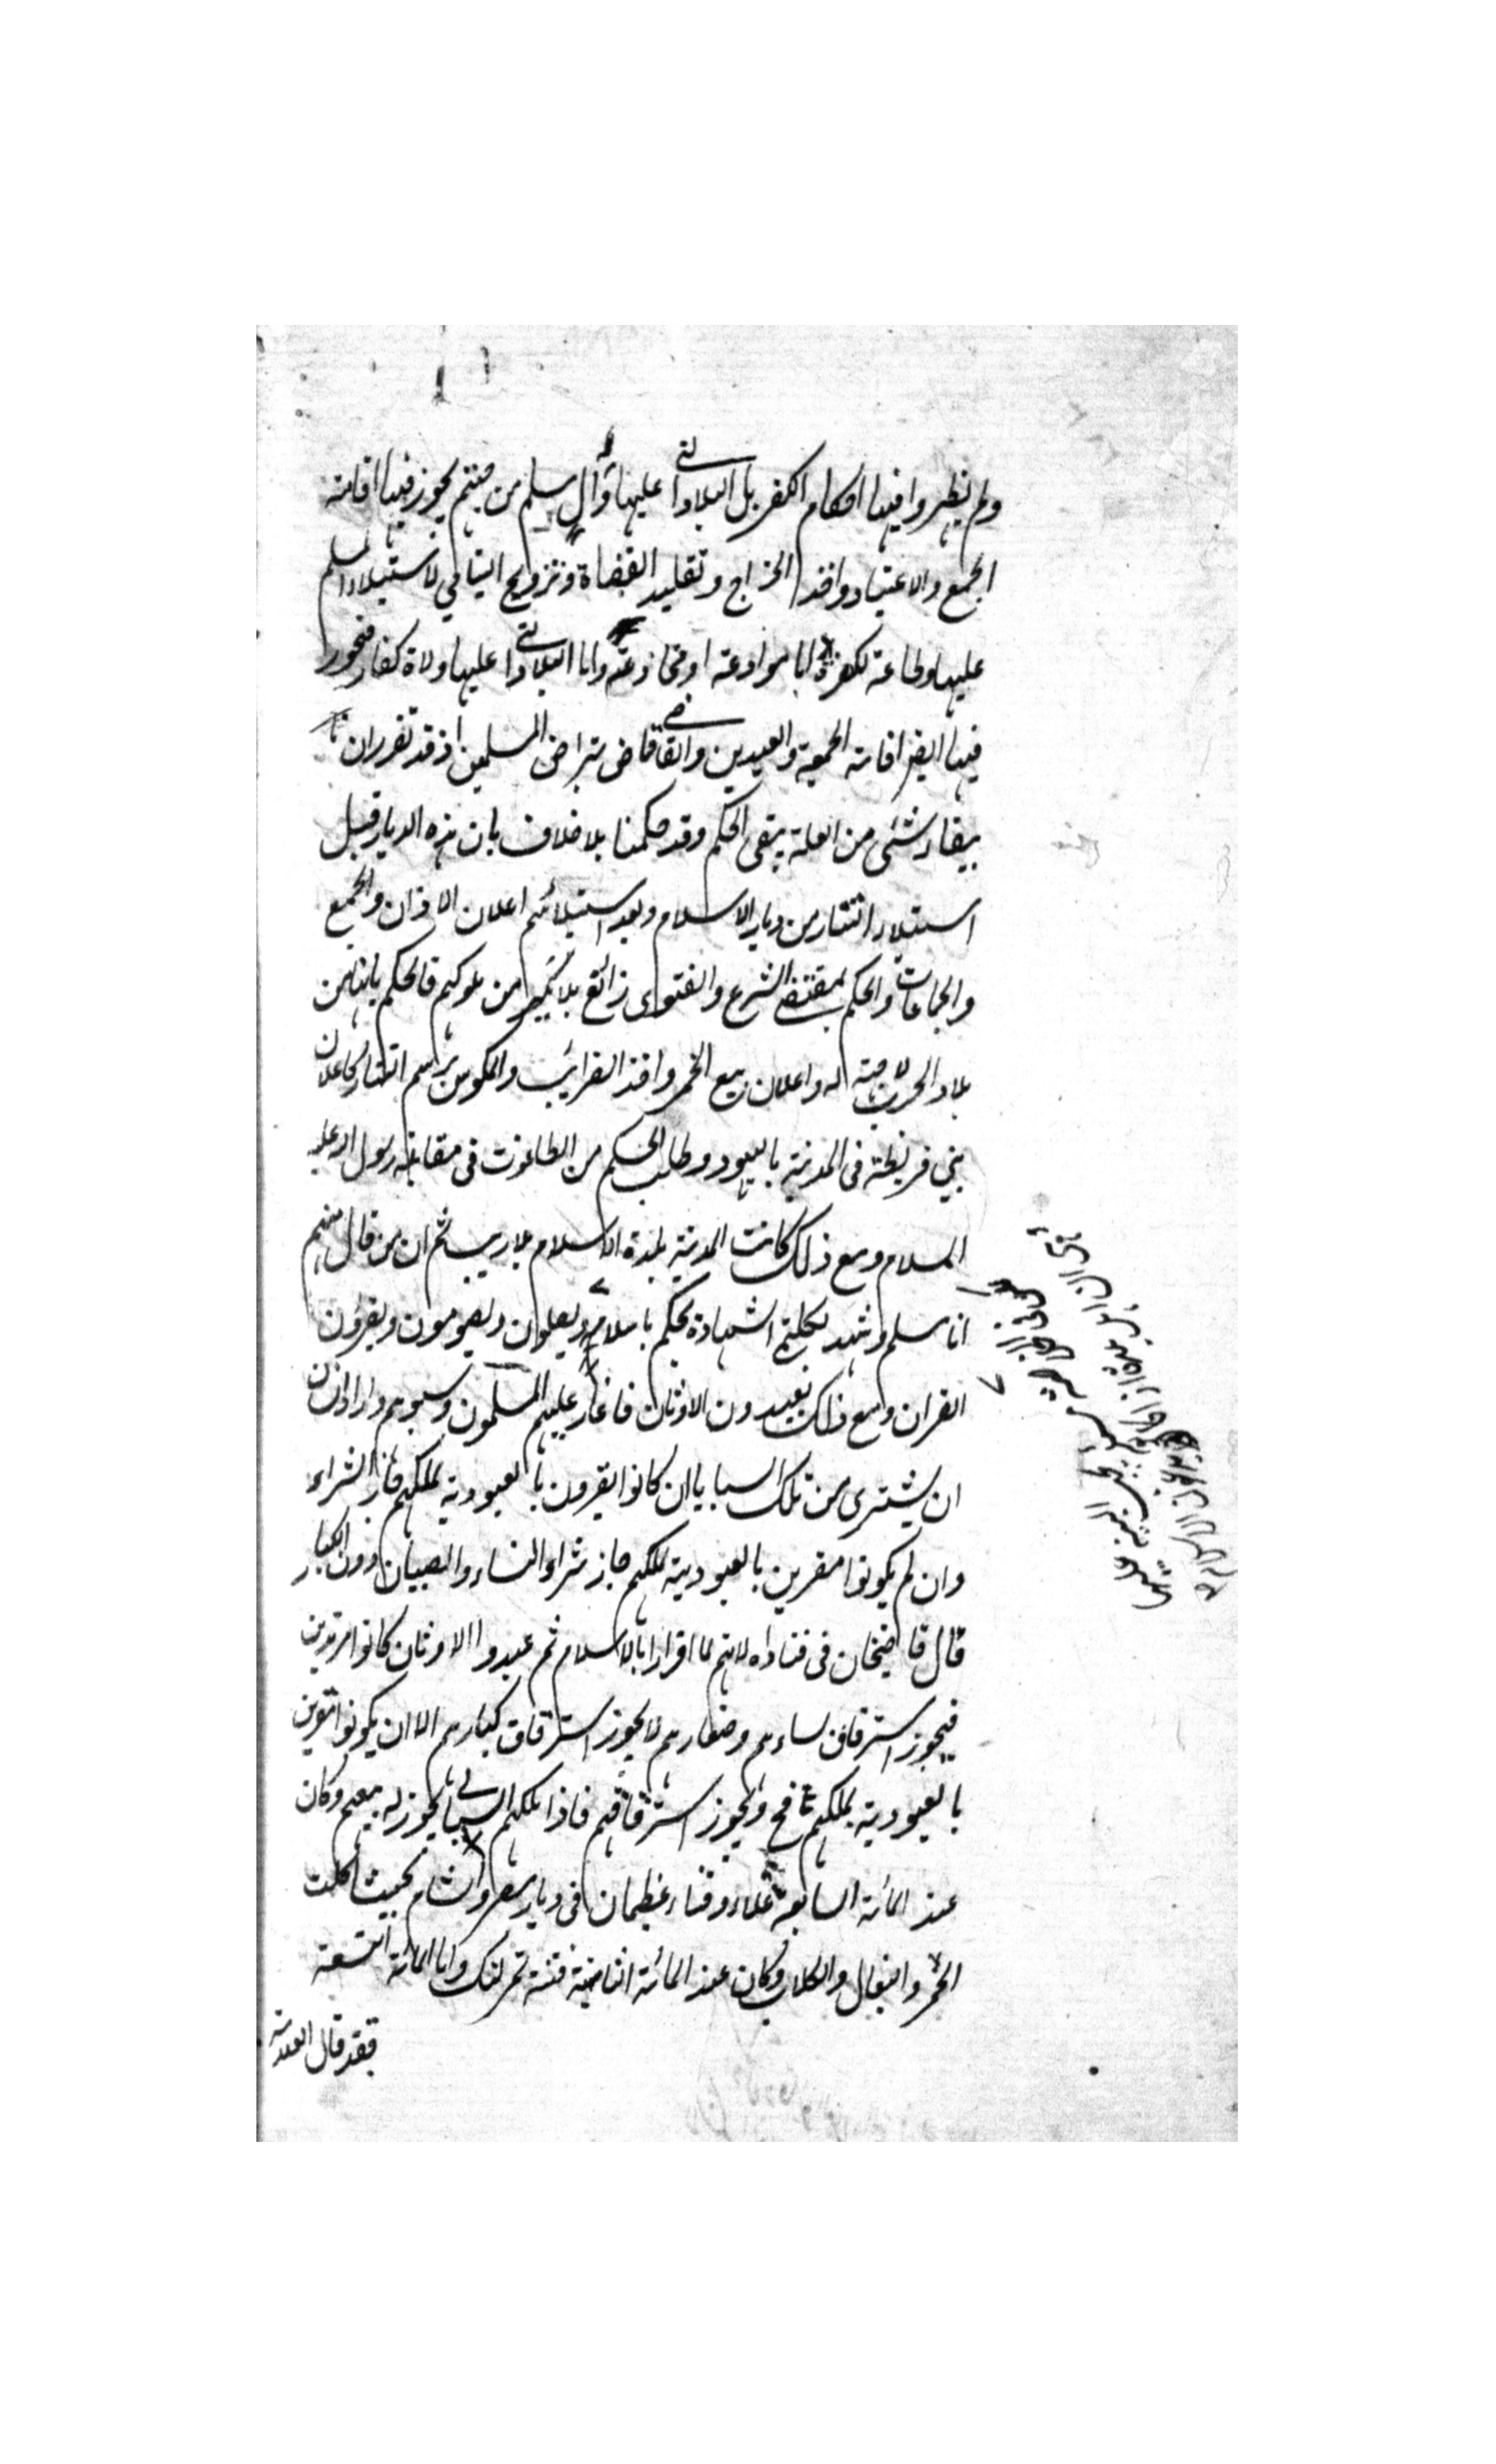 ولم يظهروا فيها احكام الكفر بل البلاد التي عليها وال مسلم من جهتهم يجوز فيها اقامة
الجمع والاعياد واخذ الخراج وتقليد القضاة وتزويج اليتامى لاستيلاء المسلم
عليها وطاعة لكفرة اما موادعة او مخادعة واما البلاد التي عليها ولاة كفار فيجوز
فيها ايضا اقامة الجمعة والعيدين والقاضى قاض بتراضى المسلمين اذ قد تقرر ان
ببقاء شئ من العلة يبقى الحكم وقد حكمنا بلا خلاف بان هذه الديار قبل
استيلاء التتار من ديار الاسلام وبعد استيلائهم اعلان الاذان والجمع
والجماعات والحكم بمقتضى الشرع والفتوى ذائع بلا نكير من ملوكهم فالحكم بانها من
بلاد الحرب لا جهة له واعلان بيع الخمر واخذ الضرائب والمكوس برسم التتار كاعلان
بني قريظة فى المدينة باليهود وطلب الحكم من الطاغوت فى مقابلة رسول الله عليه
السلام ومع ذلك كانت المدينة بلدة الاسلام بلا ريب ثم ان من قال منهم
انا مسلم وشهد بكلمتي الشهادة يحكم باسلامه ويصلون ويصومون ويقرؤن
القران ومع ذلك يعبدون الاوثان فاغار عليهم المسلمون وسبوهم واراد انسان
ان يشترى من تلك السبايا ان كانوا يقرون بالعبودية لملكهم جاز الشراء
وان لم يكونوا مقرين بالعبودية لملكهم جاز شراء النساء والصبيان دون الكبار
قال قاضيخان فى فتاواه لانهم لما اقروا بالاسلام ثم عبدوا الاوثان كانوا مرتدين
فيجوز استرقاق نساءهم وصغارهم لا يجوز استرقاق كبارهم الا ان يكونوا مقرين
بالعبودية لملكهم فح ويجوز استرقاقهم فاذا ملكهم السابى يجوز له بيعهم وكان
عند المائة السابعة غلاء وفناء عظيمان فى ديار مصر والشام بحيث اكلت
الحمر والبغال والكلاب وكان عند المائة الثامنة فتنة تمرلنك واما المائة التسعة
فقد قال العلامة